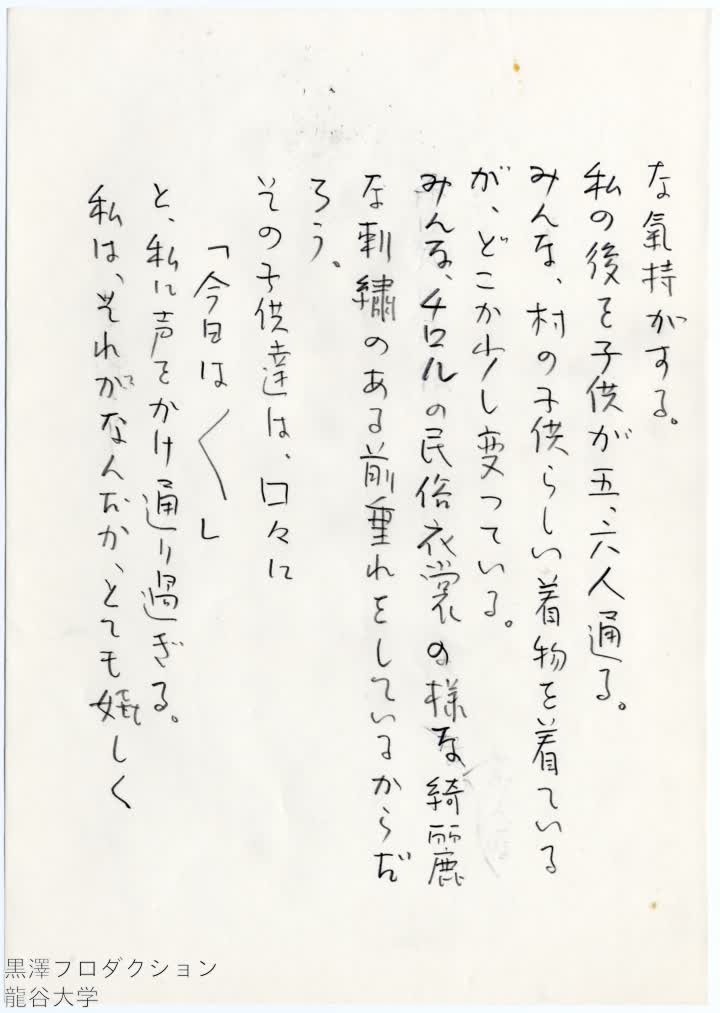 な氣持がする。
私の後を子供が五、六人通る。
みんな、村の子供らしい着物を着ている
が、どこか少し変つている。
みんな、チロルの民俗衣裳の様な綺麗
な刺繍のある前垂れをしているからだ
ろう。
その子供達は、口々に
「今日は〱」
と、私に声をかけ通り過ぎる。
私は、それがなんだか、とても嬉しく
黒澤プロダクション
龍谷大学